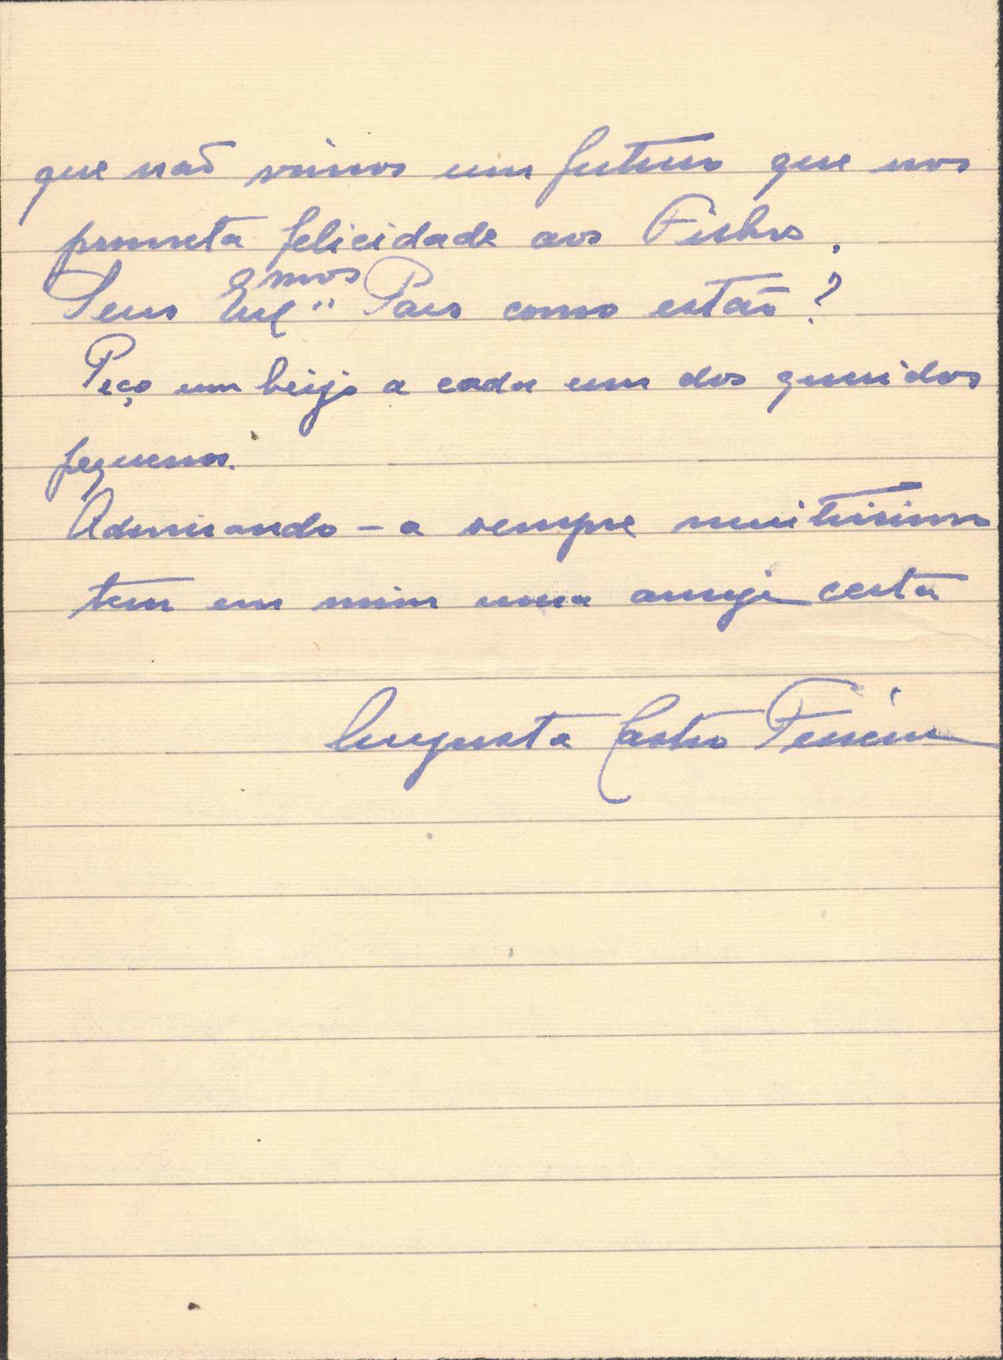 que não vimos um futuro que nos
prometa felicidade aos Filhos.
Seus Exmos Pais como estão?
Peço um beijo a cada um dos queridos
pequenos.
Admirando-a sempre muitissimo
tem em mim uma amiga certa
Augusta Castro Ferreira